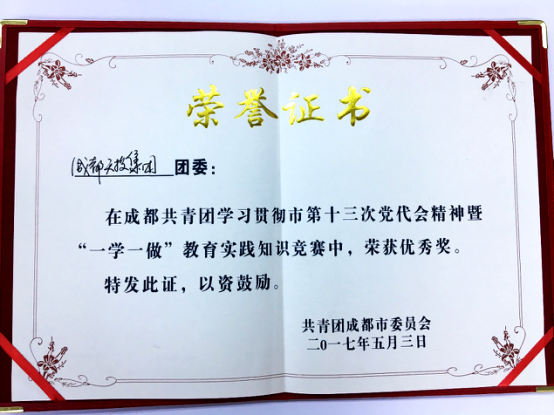 荣誉证书
成都天投集团 团委：
在成都共青团学习贯彻市第十三次党代会精神暨
“一学一做”教育实践知识竞赛中，荣获优秀奖。
特发此证，以资鼓励。
共青团成都市委员会
二0一七年五月三日